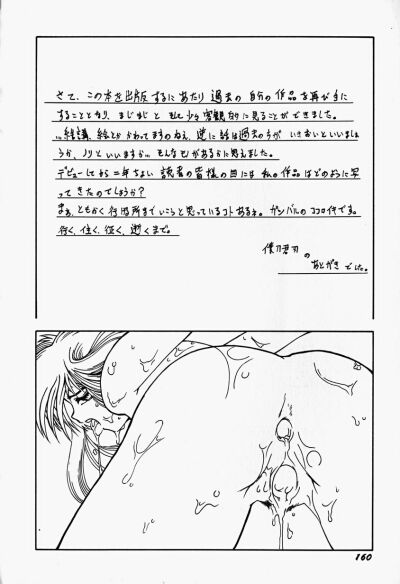 さて、この本を出版するにあたり過去の自分の作品を再び手に
することとなり、まじまじと そして少々客観的に見ることができました。
絵とか かわってますのねえ、逆に話は過去の方が いきおいといいましょ
うか、ノリといいますか… そんなモノがあるかに思えました。
デビューしてから二年ちょい 読者の皆様の目には私の作品はどのように写
ってきたのでしょうか？
まぁ、ともかく行ける所までいこうと思っているコトあるネ。ガンバルのココロイキです。
行く、往く、征く、逝くまで。
の
あとがき でした。
160